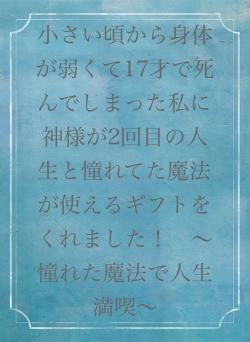 小さい頃から身体
が弱くて17才で死
んでしまった私に
神様が2回目の人
生と憧れてた魔法
が使えるギフトを
くれました！　～
憧れた魔法で人生
満喫～